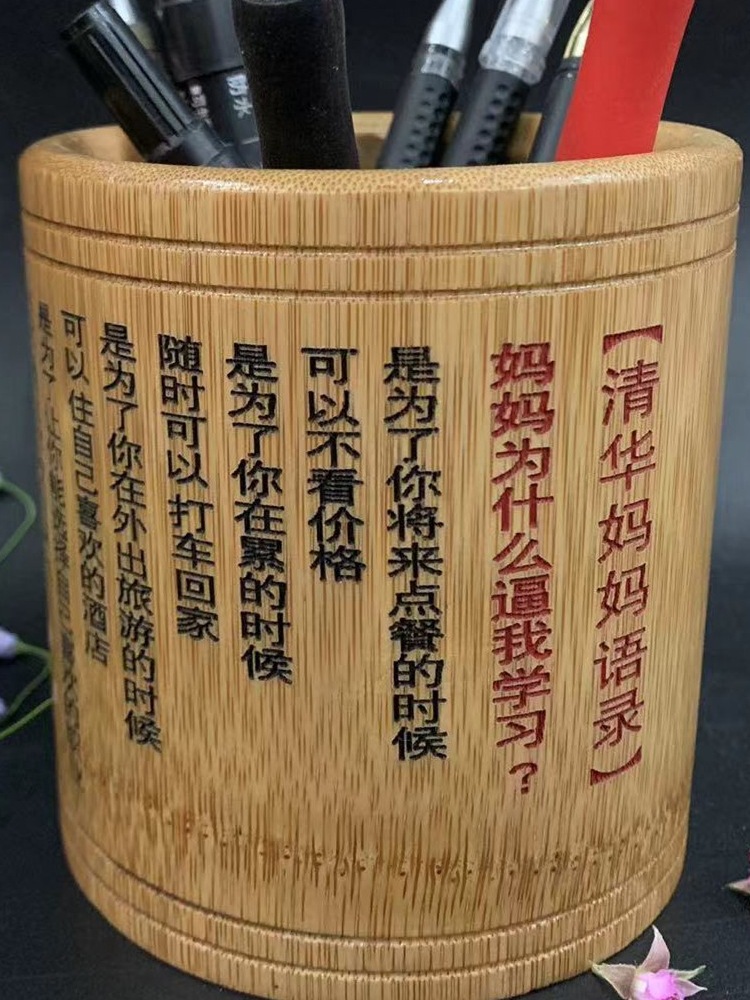 【清华妈妈语录】
妈妈为什么逼我学习？
是为了你将来点餐的时候
可以不看价格
是为了你在累的时候
随时可以打车回家
是为了你在外出旅游的时候
可以住自己喜欢的酒店
是为了让你能选择自己喜欢的
防水